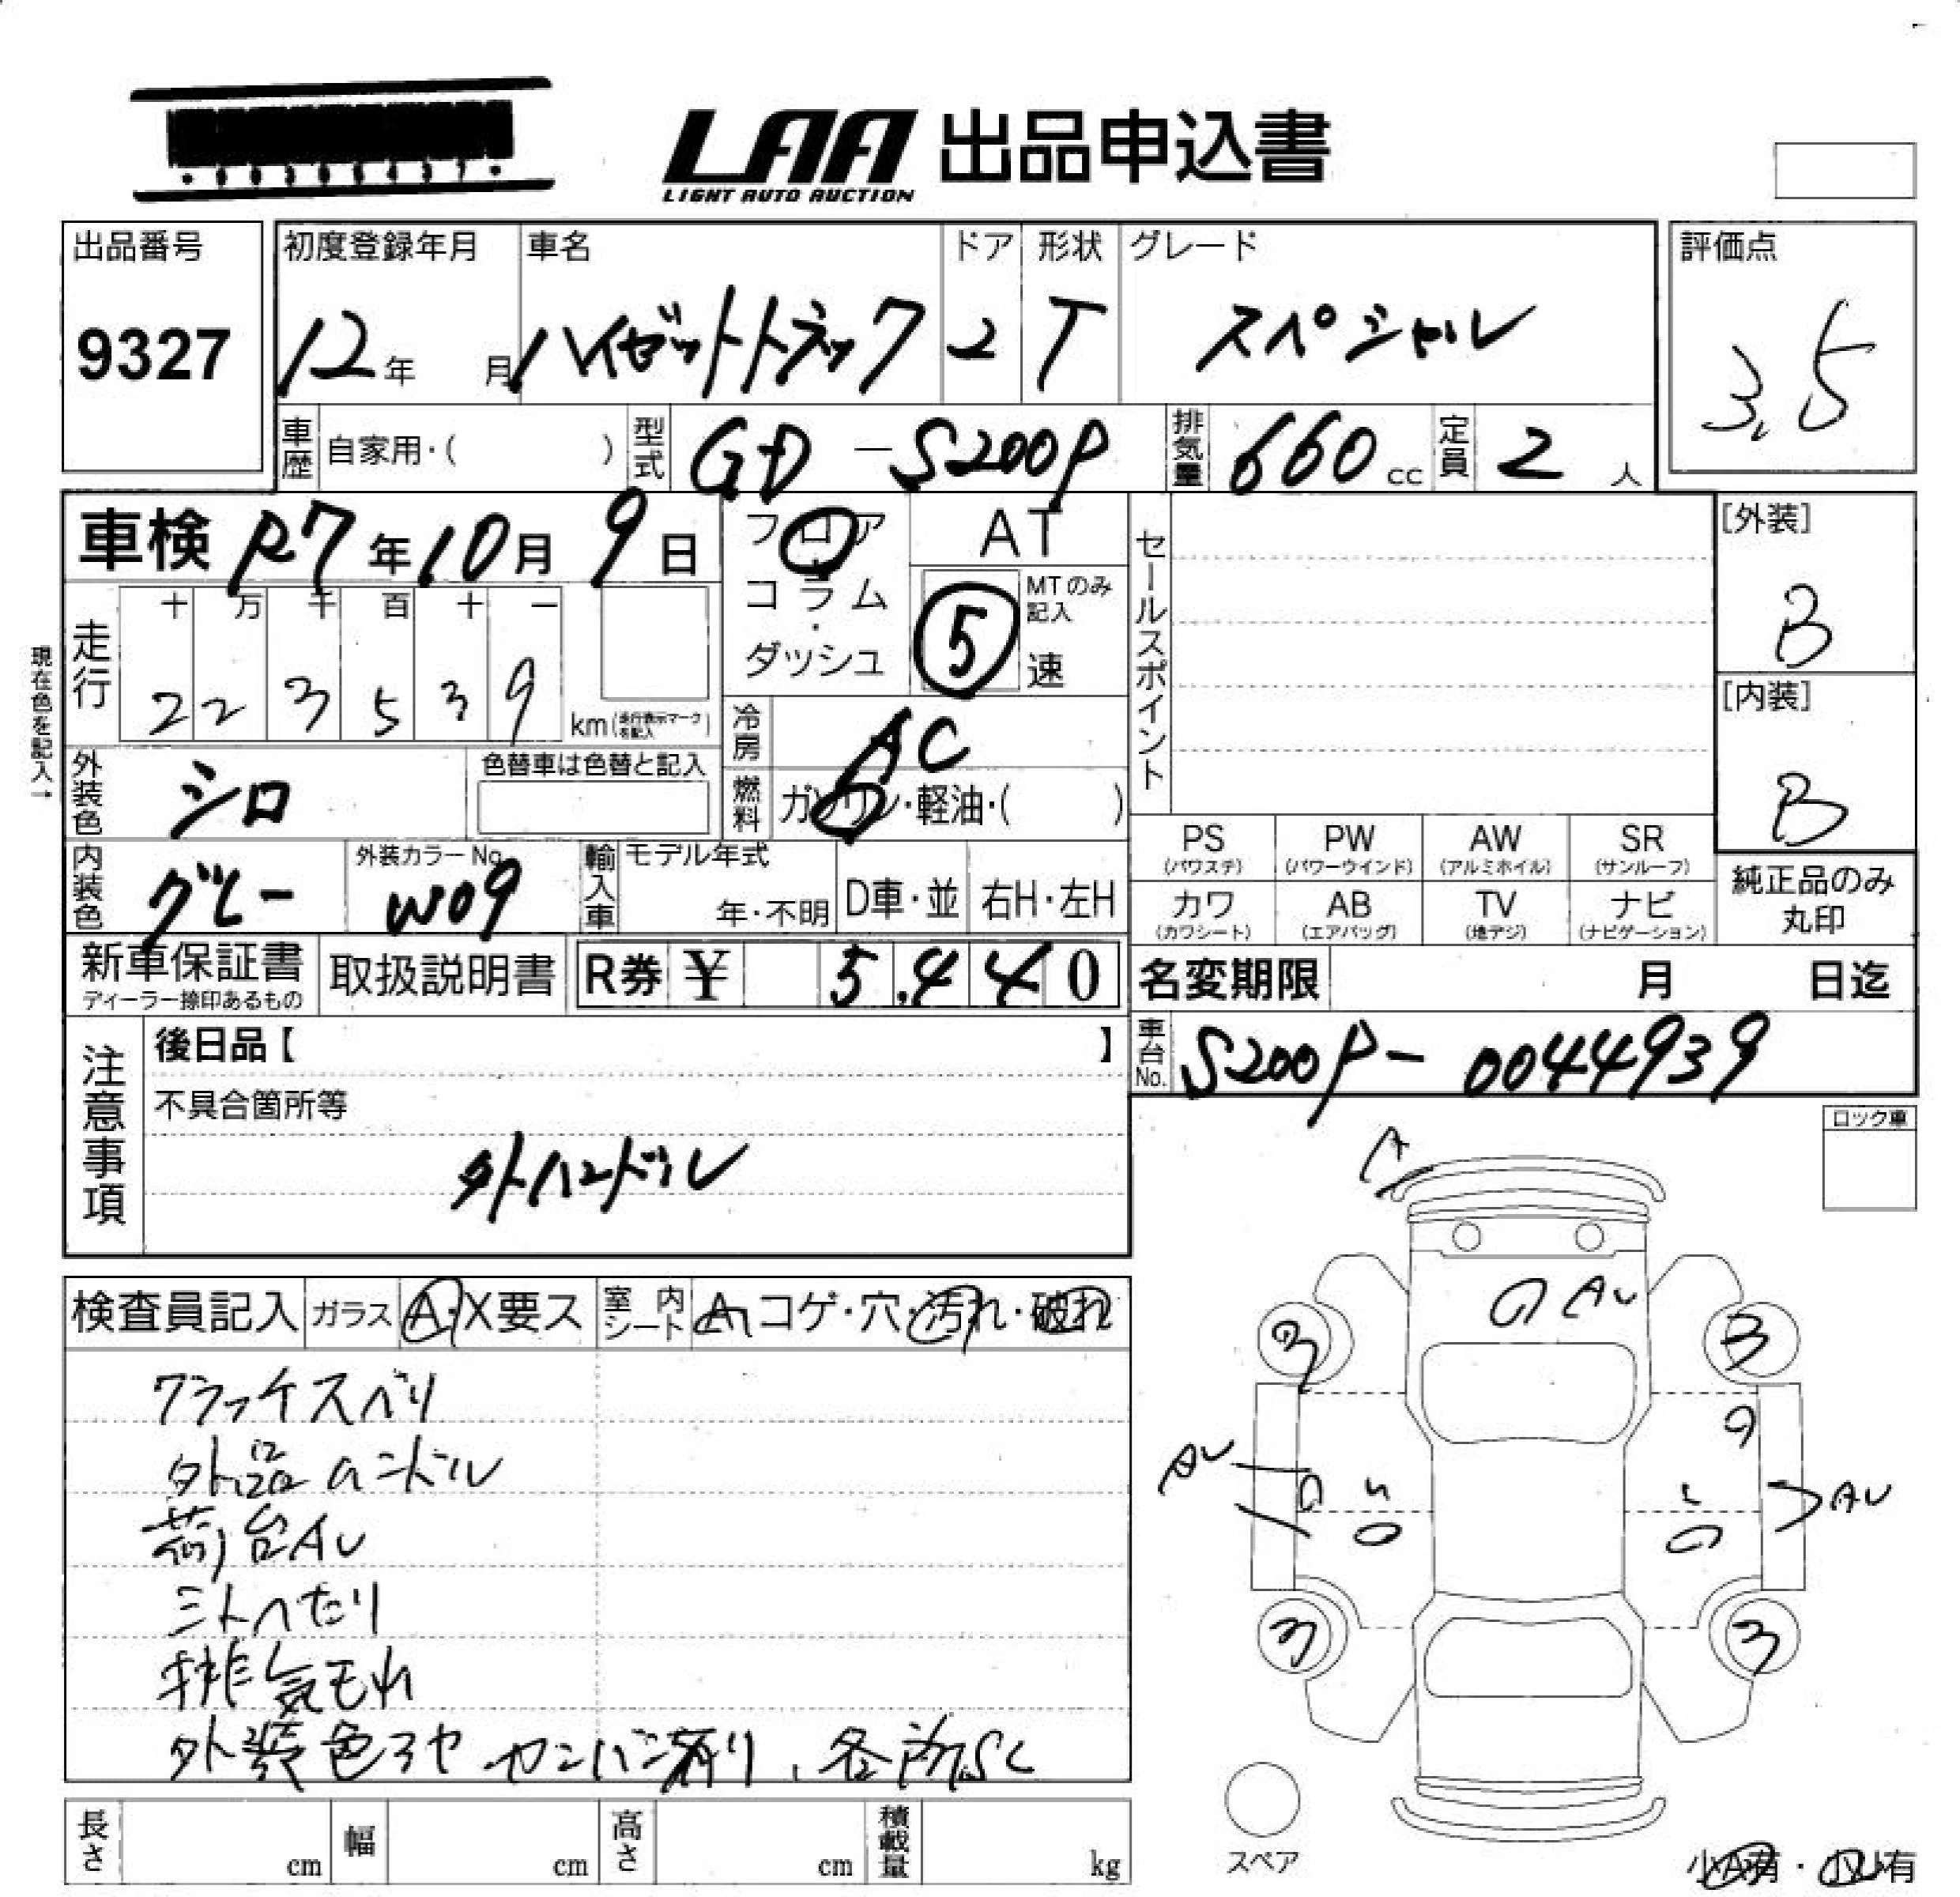 LAA 出品申込書
LIGHT AUTO AUCTION
出品番号
9327
初度登録年月 車名 ドア 形状 グレード
12年 月 ハイゼットトラック 2 T スペシャル
評価点
3.5
車歴 自家用・( ) 型式 GD-S200P 排気量 660 cc 定員 2 人
車検 R7年10月9日
フロア・コラム・ダッシュ
AT
5 速 MTのみ記入
セールスポイント
[外装]
B
[内装]
B
現在色を記入→
走行 十 万 千 百 十 一
2 2 3 5 3 9 km (走行表示マークを記入)
冷房 AC
燃料 ガソリン・軽油・( )
外装色 シロ 色替車は色替と記入
内装色 グレー 外装カラーNo. W09
輸入車 モデル年式 年・不明 D車・並 右H・左H
PS (パワステ) PW (パワーウインド) AW (アルミホイル) SR (サンルーフ)
カワ (カワシート) AB (エアバッグ) TV (地デジ) ナビ (ナビゲーション)
純正品のみ丸印
新車保証書 ディーラー捺印あるもの 取扱説明書 R券 ¥ 5,440
名変期限 月 日迄
車台No. S200P-0044939
注意事項
後日品【 】
不具合箇所等
外ハンドル
ロック車
検査員記入 ガラス A・X要ス 室内シート A・コゲ・穴・汚れ・破れ
クラッチスベリ
外品ハンドル
荷台AU
ミトヘたり
排気もれ
外装色ヨヤ カンバン有り、各所SC
A
AU
3 3
AU AU
3 3
スペア
小A有・小U有
長さ cm 幅 cm 高さ cm 積載量 kg